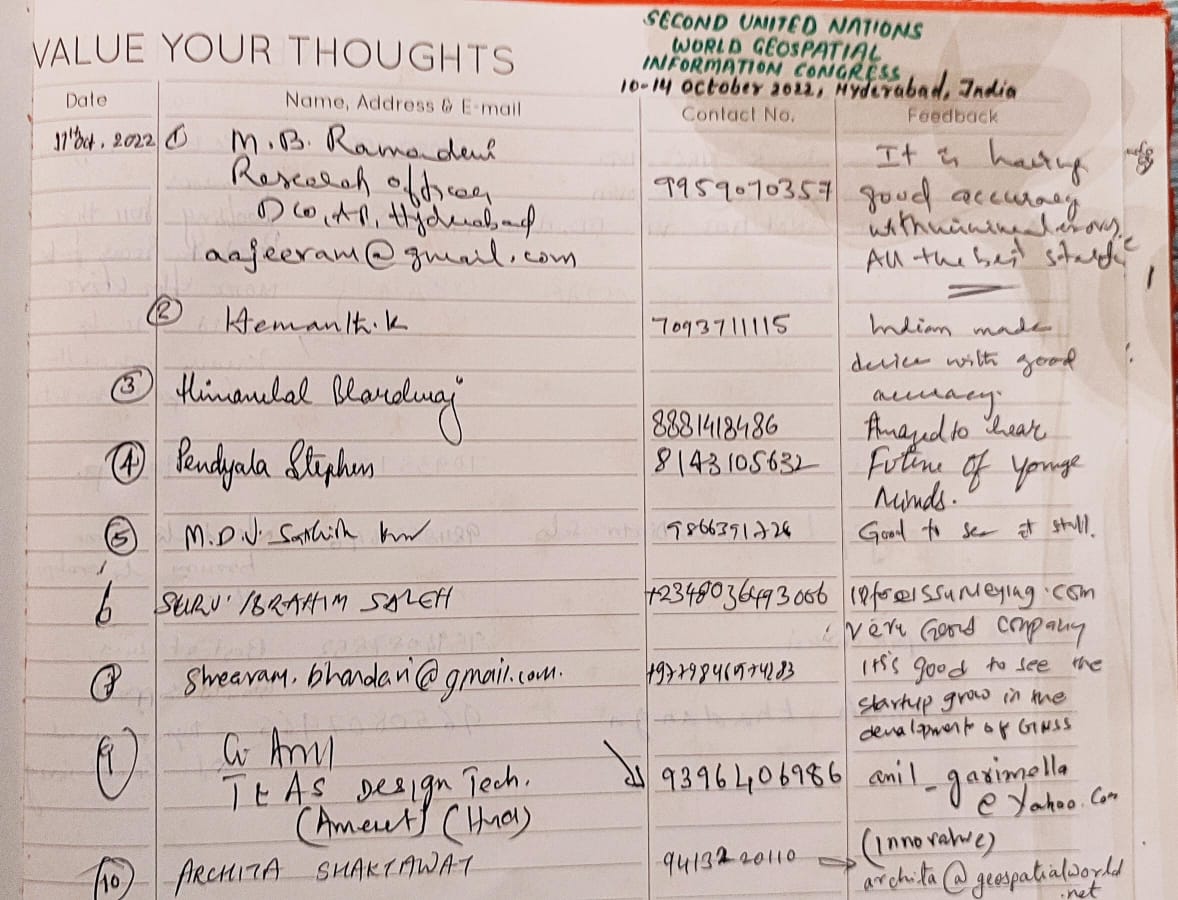 VALUE YOUR THOUGHTS
SECOND UNITED NATIONS
WORLD GEOSPATIAL
INFORMATION CONGRESS
10-14 October 2022, Hyderabad, India
Date Name, Address & E-mail Contact No. Feedback
11th Oct, 2022 ① M.B. Ramadevi It is having
Research officer 9959070357 good accuracy
DCO, AP, Hyderabad with minimal errors.
aajeeram@gmail.com All the best
② Hemanth.k 7093711115 Indian made
device with good
③ Himanshal Bhardwaj accuracy.
8881418486 Amazed to hear
④ Pendyala Stephen 8143105632 Future of younge
Minds.
⑤ M.D.V. Sathish Good to see it still.
6 IBRAHIM SALEH +2348036493006
Very Good company
⑦ Shrearam.bhandari@gmail.com. It's good to see the
startup grow in the
devalopment of GNSS
⑨ G Anil 9396406986 anil_garimella
Design Tech. @ Yahoo.Com
(Innovative)
⑩ ARCHITA SHAKTAWAT 9413220110 archita@geospatialworld
.net